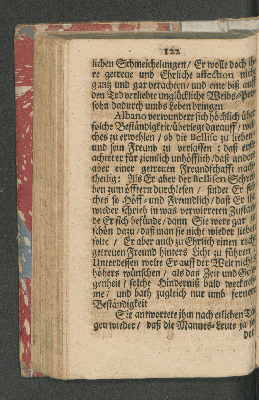 122
lichen Schmeichelungen / Er wolle doch ih
re getreue und Ehrliche affection nicht
gantz und gar verachten / und eine biß auff
den Tod verliebte unglückliche Weibs-Per
sohn dadurch umbs Leben bringen
Albano verwundert sich höchlich über
solche Beständigkeit / überlegt darauff / wel
ches zu erwehlen / ob die Bellise zu lieben
und sein Freund zu verlassen; daß erste
achtet er für ziemlich unhöfflich / daß ander
aber einer getreuen Freundschafft nach
theilig: Als Er aber der Bellisen Schrei
ben zum öfftern durchlesen / findet Er sol
ches so Höff- und Freundlich / daß Er ihr
wieder schrieb in was verwirreten Zustan
de Er sich befünde / dann Sie wers gar
schön dazu / daß man sie nicht wieder lieben
solte / Er aber auch zu Ehrlich einen
getreuen Freund hinters Licht zu führen /
Unterdessen wolte Er auff der Welt nichts
höhers wünschen / als das Zeit und Gele
genheit / solche Hinderniß bald wecknehme
me / und bath zugleich nur umb fernere
Beständigkeit
Sie antwortete ihm nach etlichen Ta
gen wieder / daß die Mannes-Leute ja
der